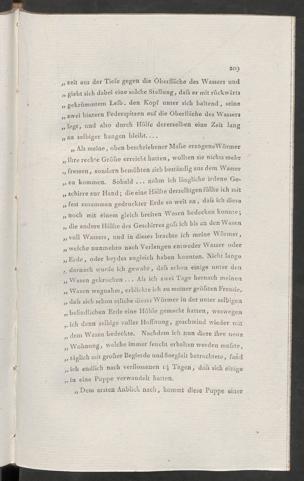 203
„ zeit aus der Tiefe gegen die Oberfläche des Wassers und
„ giebt sich dabei eine solche Stellung, daß er mit rückwärts
„ gekrümmtem Leib, den Kopf unter sich haltend, seine
„ zwei hintern Federspitzen auf die Oberfläche des Wassers
„ lege, und also durch Hülfe derselben eine Zeit lang
„ an selbiger hangen bleibt....
„ Als meine, oben beschriebener Maße erzogene Würmer
„ ihre rechte Größe erreicht hatten, wollten sie nichts mehr
„ fressen, sondern bemühten sich beständig aus dem Wasser
„ zu kommen. Sobald ... nahm ich länglichte irdene Ge-
„ schirre zur Hand; die eine Hälfte derselbigen füllte ich mit
„ fest zusammen gedruckter Erde so weit an, daß ich diese
„ noch mit einem gleich breiten Wasen bedecken konnte;
„ die andere Hälfte des Geschirres goß ich bis an den Wasen
„ voll Wassers, und in dieses brachte ich meine Würmer,
„ welche nunmehro nach Verlangen entweder Wasser oder
„ Erde, oder beydes zugleich haben konnten. Nicht lange
„ darnach wurde ich gewahr, daß schon einige unter den
„ Wasen gekrochen ... Als ich zwei Tage hernach meinen
„ Wasen wegnahm, erblickte ich zu meiner größten Freude,
„ daß sich schon etliche dieser Würmer in der unter selbigen
„ befindlichen Erde eine Höhle gemacht hatten, weswegen
„ ich denn selbige voller Hoffnung, geschwind wieder mit
„ dem Wasen bedeckte. Nachdem ich nun diese ihre neue
„ Wohnung, welche immer feucht erhalten werden mußte,
„ täglich mit großer Begierde und Sorgfalt betrachtete, fand
„ ich endlich nach verflossenen 14 Tagen, daß sich einige
„ in eine Puppe verwandelt hatten.
„ Dem ersten Anblick nach, kommt diese Puppe einer